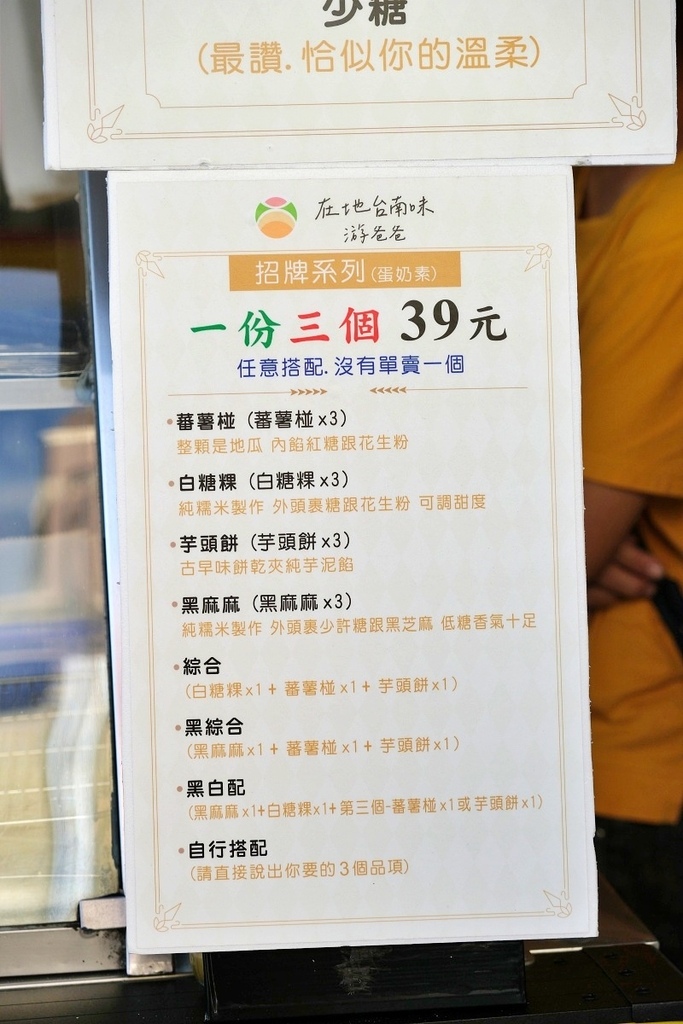 少糖
(最讚.恰似你的溫柔)
在地台南味
游爸爸
招牌系列(蛋奶素)
一份三個 39元
任意搭配.沒有單賣一個
•蕃薯椪 (蕃薯椪x3)
整顆是地瓜 內餡紅糖跟花生粉
•白糖粿 (白糖粿x3)
純糯米製作 外頭裹糖跟花生粉 可調甜度
•芋頭餅 (芋頭餅x3)
古早味餅乾夾純芋泥餡
•黑麻麻 (黑麻麻x3)
純糯米製作 外頭裹少許糖跟黑芝麻 低糖香氣十足
•綜合
(白糖粿x1+ 蕃薯椪x1+ 芋頭餅x1)
•黑綜合
(黑麻麻x1+ 蕃薯椪x1+ 芋頭餅x1)
•黑白配
(黑麻麻x1+白糖粿x1+第三個-蕃薯椪x1或芋頭餅x1)
•自行搭配
(請直接說出你要的3個品項)